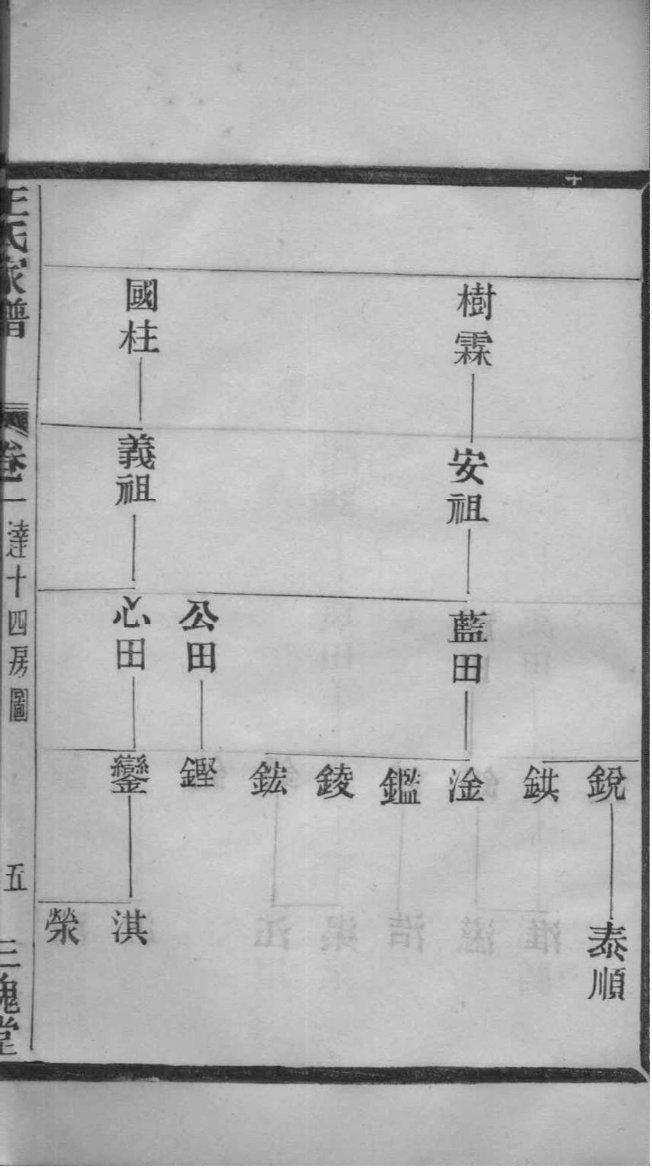 樹霖
國柱
安祖
義祖
藍田
公田
心田
銳
鉷
淦
鑑
錂
鋐
鏗
鑾
泰順
淇
榮
王氏家譜
卷一
達十四房圖
五
三槐堂